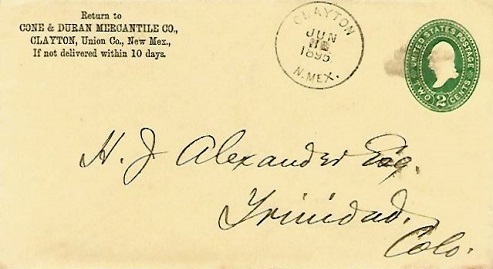 Return to
CONE & DURAN MERCANTILE CO.,
CLAYTON, Union Co., New Mex.,
If not delivered within 10 days.
CLAYTON
JUN
1895
N. MEX.
UNITED STATES POSTAGE
TWO 2 CENTS
H. J. Alexander Esq.
Trinidad.
Colo.